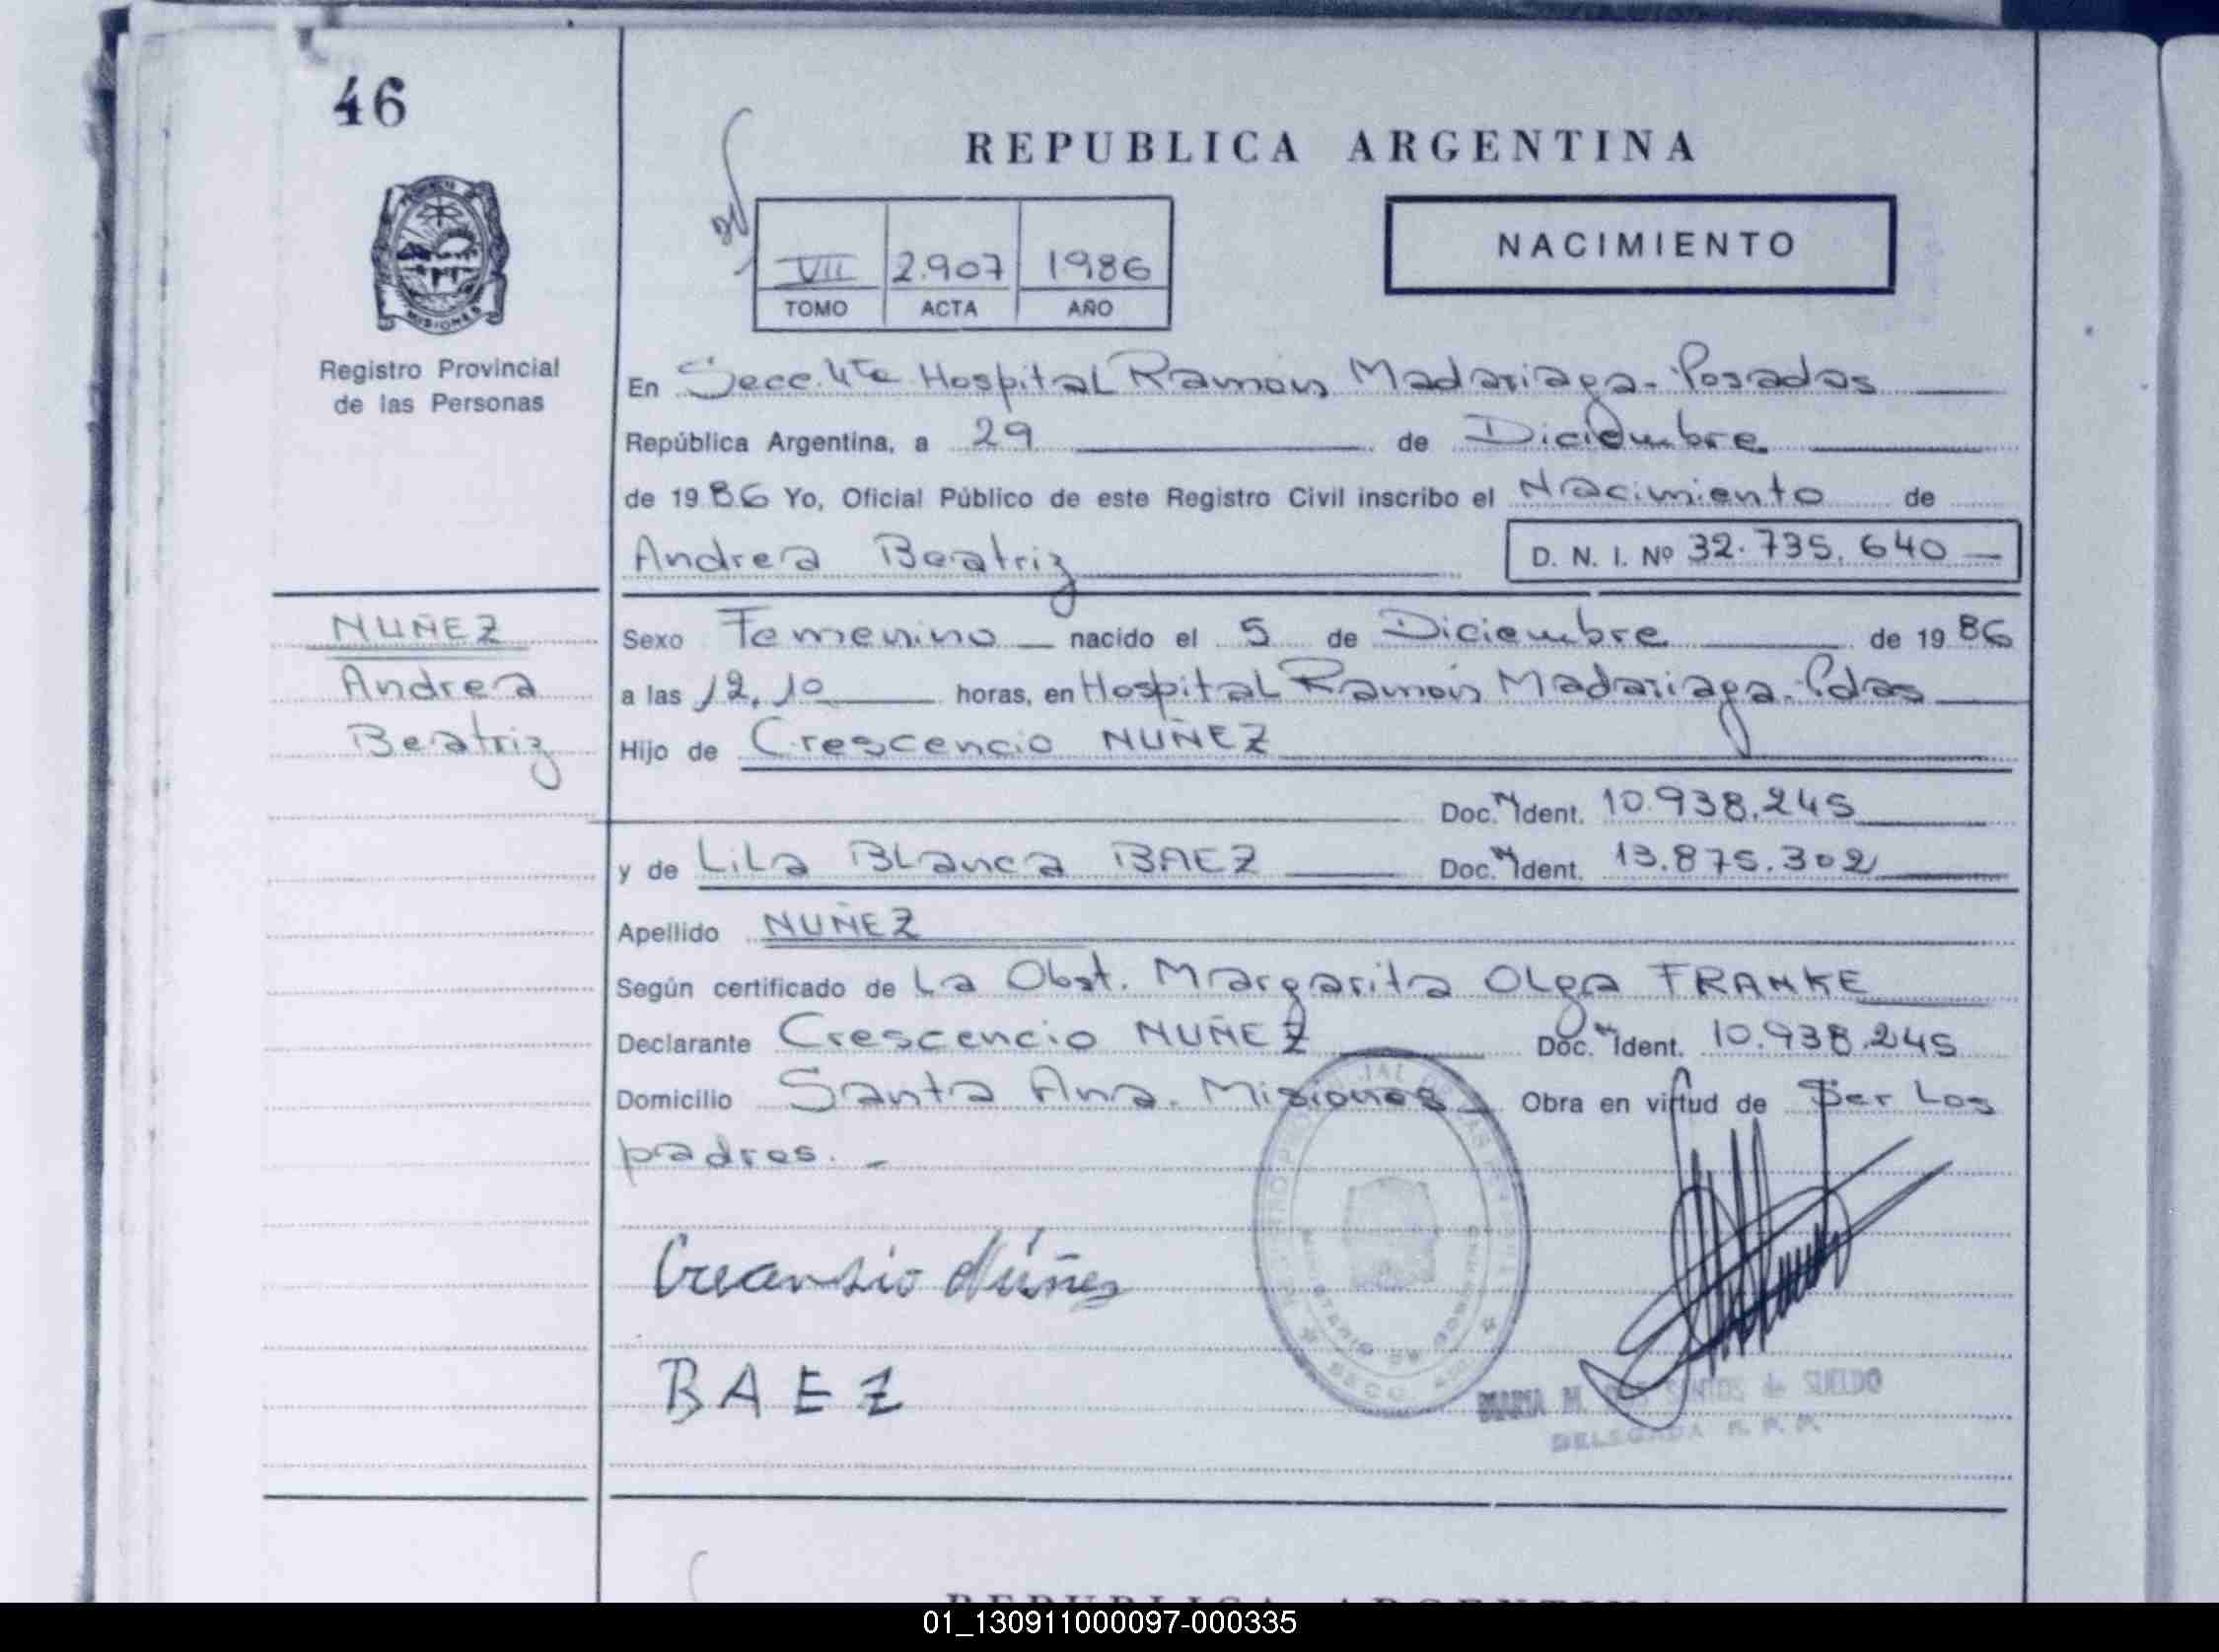 46
REPUBLICA ARGENTINA
NACIMIENTO
VII 2.907 1986
TOMO ACTA AÑO
MISIONES
Registro Provincial
de las Personas
En Secc. 4ta Hospital Ramón Madariaga - Posadas
República Argentina, a 29 de Diciembre
de 1986 Yo, Oficial Público de este Registro Civil inscribo el Nacimiento de
Andrea Beatriz
D. N. I. Nº 32.735.640 —
NUÑEZ
Andrea
Beatriz
Sexo Femenino — nacido el 5 de Diciembre de 1986
a las 12,10 horas, en Hospital Ramón Madariaga - Pdas
Hijo de Crescencio NUÑEZ
Doc. N Ident. 10.938.245
y de Lila Blanca BAEZ Doc. N Ident. 13.875.302
Apellido NUÑEZ
Según certificado de La Obst. Margarita Olga FRANKE
Declarante Crescencio NUÑEZ Doc. N Ident. 10.938.245
Domicilio Santa Ana. Misiones Obra en virtud de Ser Los
padres. -
Núñes
BAEZ
MARIA M. DOS SANTOS de SUELDO
DELEGADA R. P. P.
REPUBLICA ARGENTINA
01_130911000097-000335